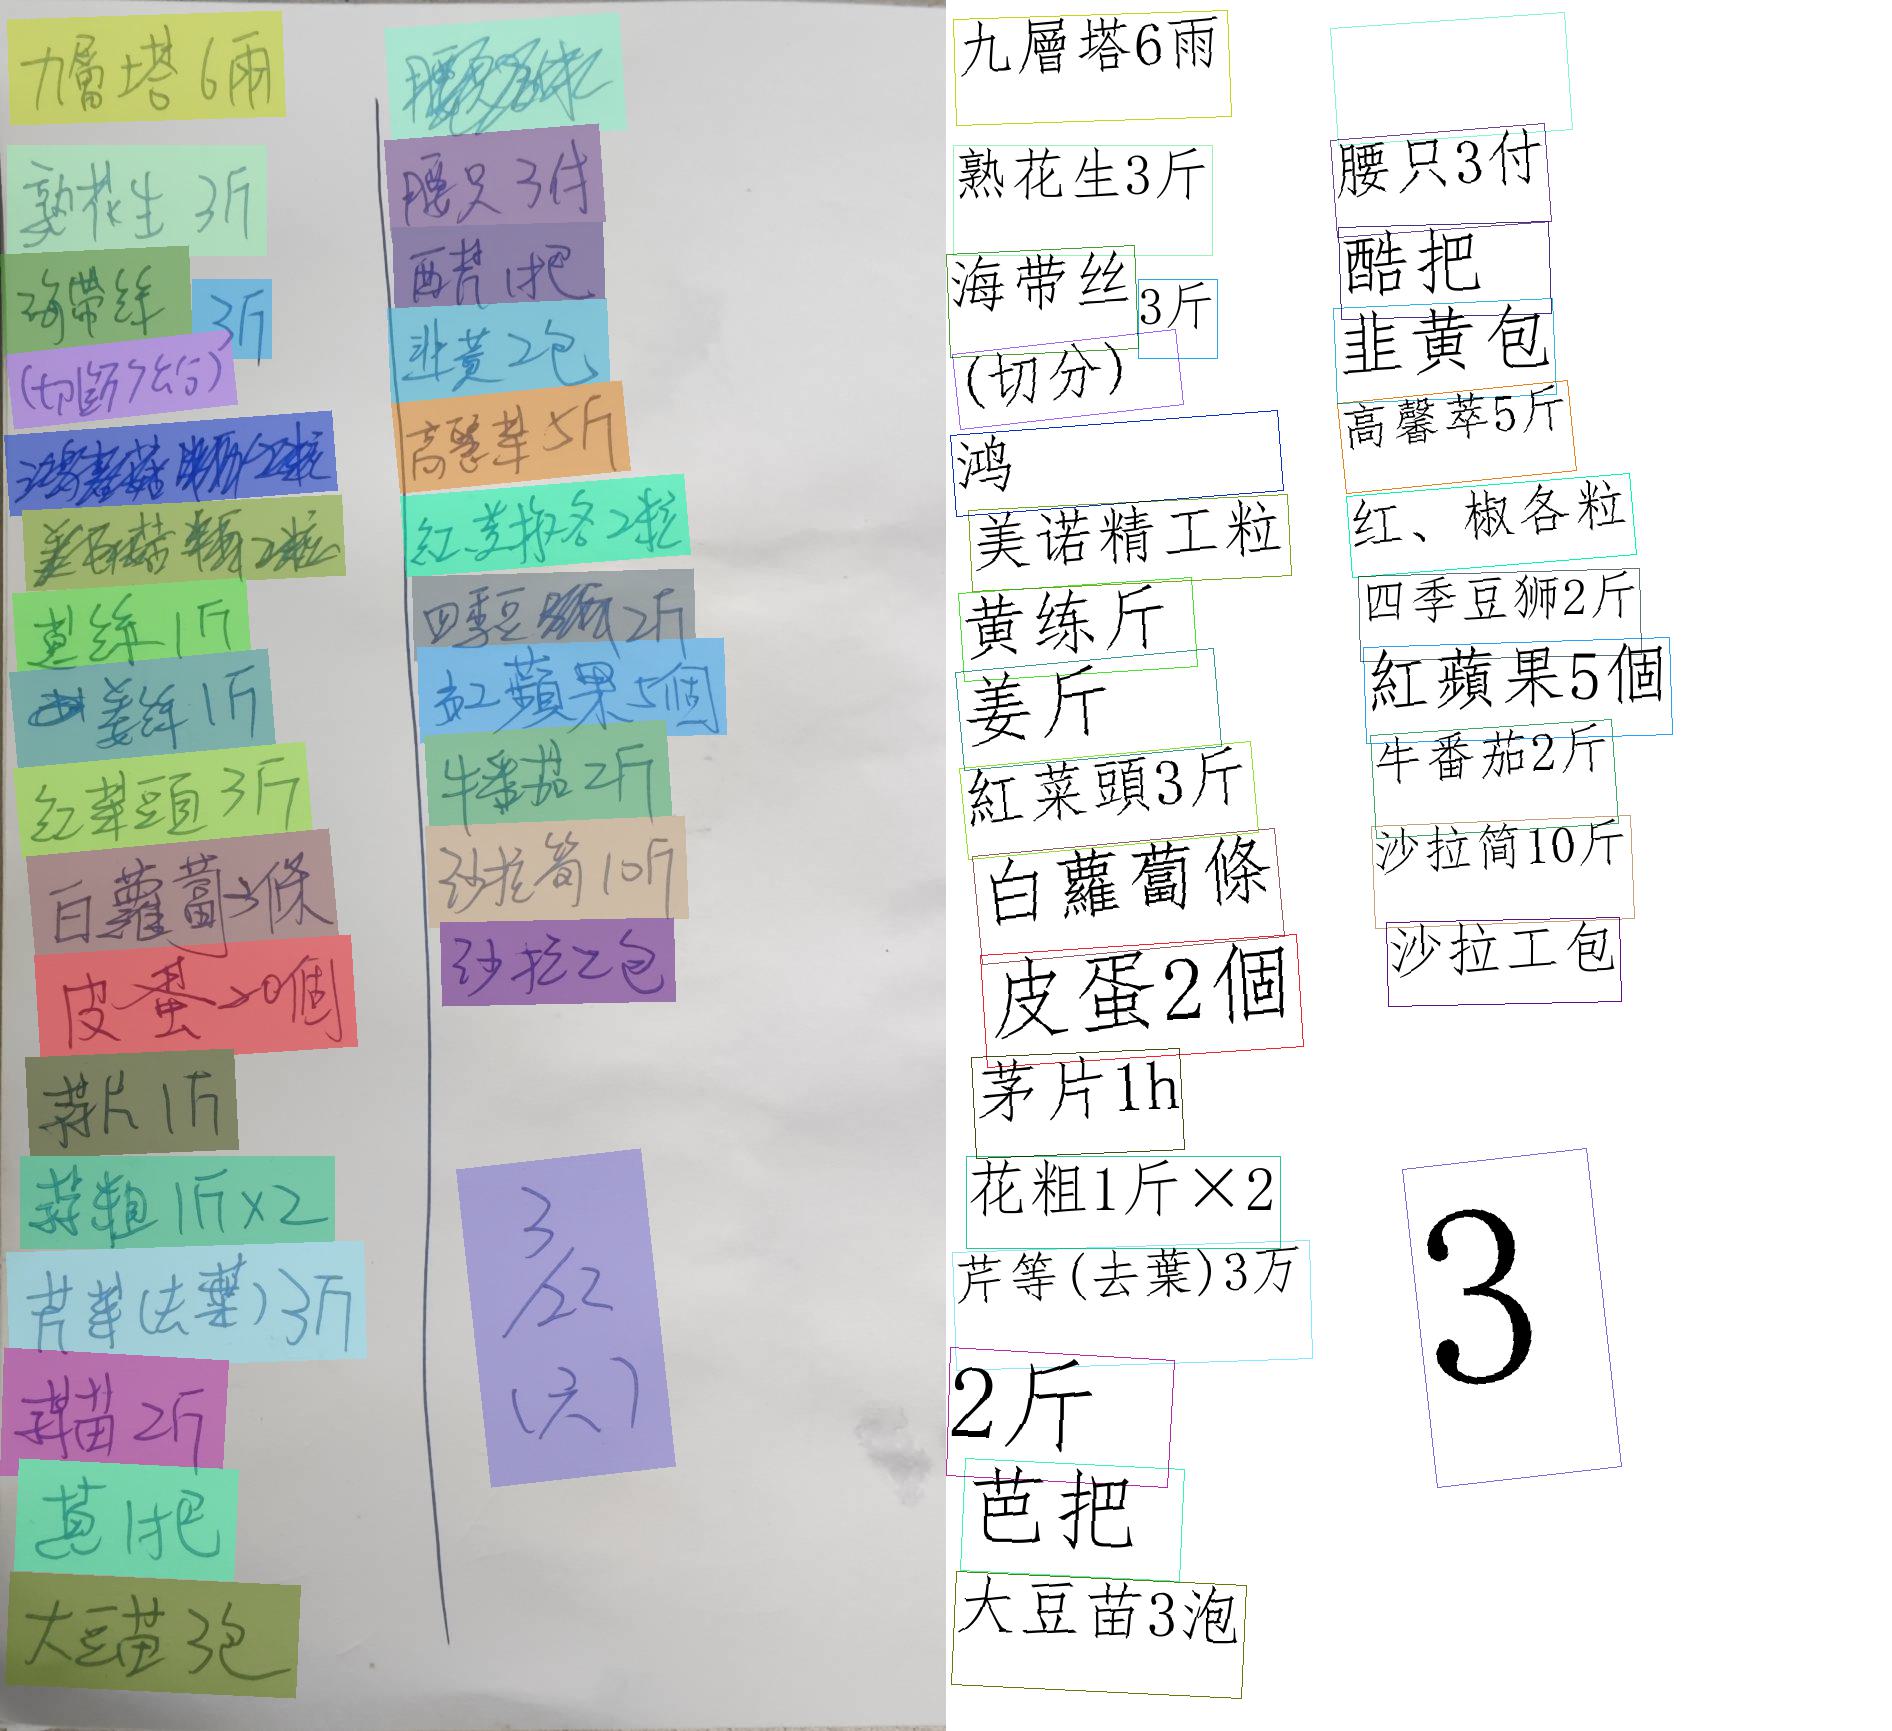 九層塔 6雨
熟花生 3斤
海帶絲 3斤
(切
蔥絲 1斤
姜絲 1斤
紅菜頭 3斤
白蘿蔔 3條
皮蛋 20個
蒜片 1斤
蒜粗 1斤x2
芹菜(去葉) 3斤
蒜苗 2斤
蔥 1把
大豆苗 3包
腰只 3付
1把
韭黃 2包
高麗菜 5斤
紅 椒各2粒
四季豆 2斤
紅蘋果 5個
牛番茄 2斤
沙拉筍 10斤
沙拉 2包
3/22
(六)
九層塔6雨
熟花生3斤
海带丝
3斤
(切分)
鸿
美诺精工粒
黄练斤
姜斤
紅菜頭3斤
白蘿蔔條
皮蛋2個
茅片1h
花粗1斤×2
芹等(去葉)3万
2斤
芭把
大豆苗3泡
腰只3付
酷把
韭黄包
高馨萃5斤
红、椒各粒
四季豆狮2斤
紅蘋果5個
牛番茄2斤
沙拉简10斤
沙拉工包
3